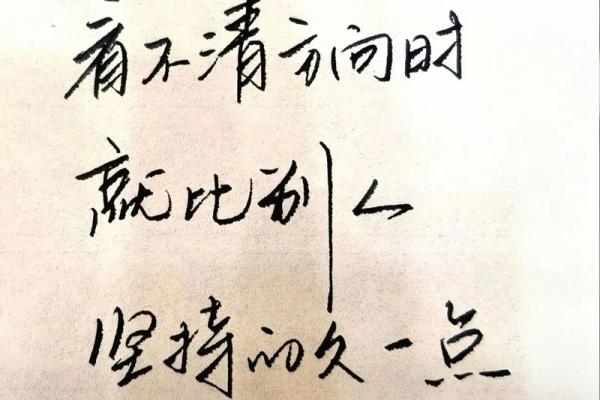 看不清方向时
就比别人
坚持的久一点